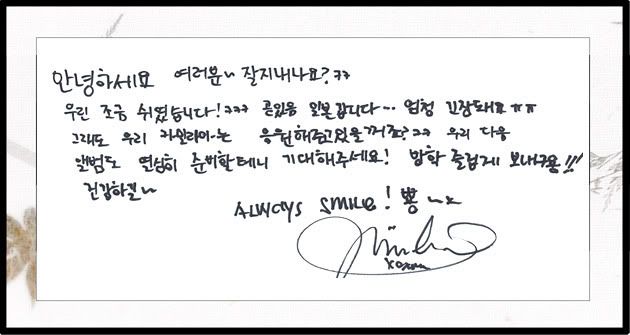 안녕하세요 여러분~ 잘지내나요? ㅋㅋ
우린 조금 쉬였습니다! ㅋㅋㅋ 곧있음 일본갑니다… 엄청 긴장돼요 ㅠㅠ
그래도 우리 카밀리아~는 응원해주고있을꺼죠? ㅋㅋ 우리 다음
앨범도 열심히 준비할테니 기대해주세요! 방학 즐겁게 보내구용!!!
건강하길~
ALWAYS SMILE! 뿅~